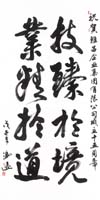 祝贺雅昌企业集团有限公司成立十五周年
技臻於境
業精於道
戊子年